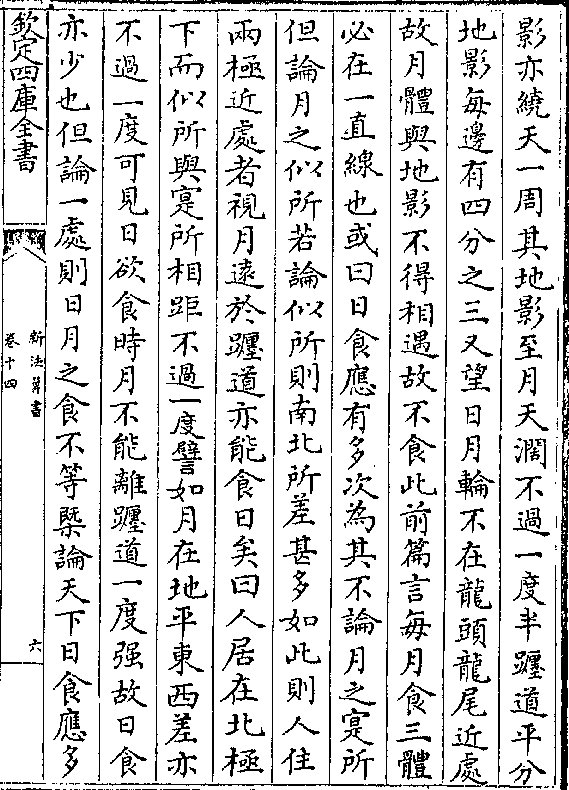 影亦繞天一周其地影至月天濶不過一度半躔道平分
地影每邊有四分之三又望日月輪不在龍頭龍尾近處
故月體與地影不得相遇故不食此前篇言每月食三體
必在一直線也或曰日食應有多次為其不論月之寔所
但論月之似所若論似所則南北所差甚多如此則人住
兩極近處者視月逺於躔道亦能食日矣曰人居在北極
下而似所與寔所相距不過一度譬如月在地平東西差亦
不過一度可見日欲食時月不能離躔道一度强故日食
亦少也但論一處則日月之食不等槩論天下日食應多
欽定四庫全書
新法算書
卷十四
六